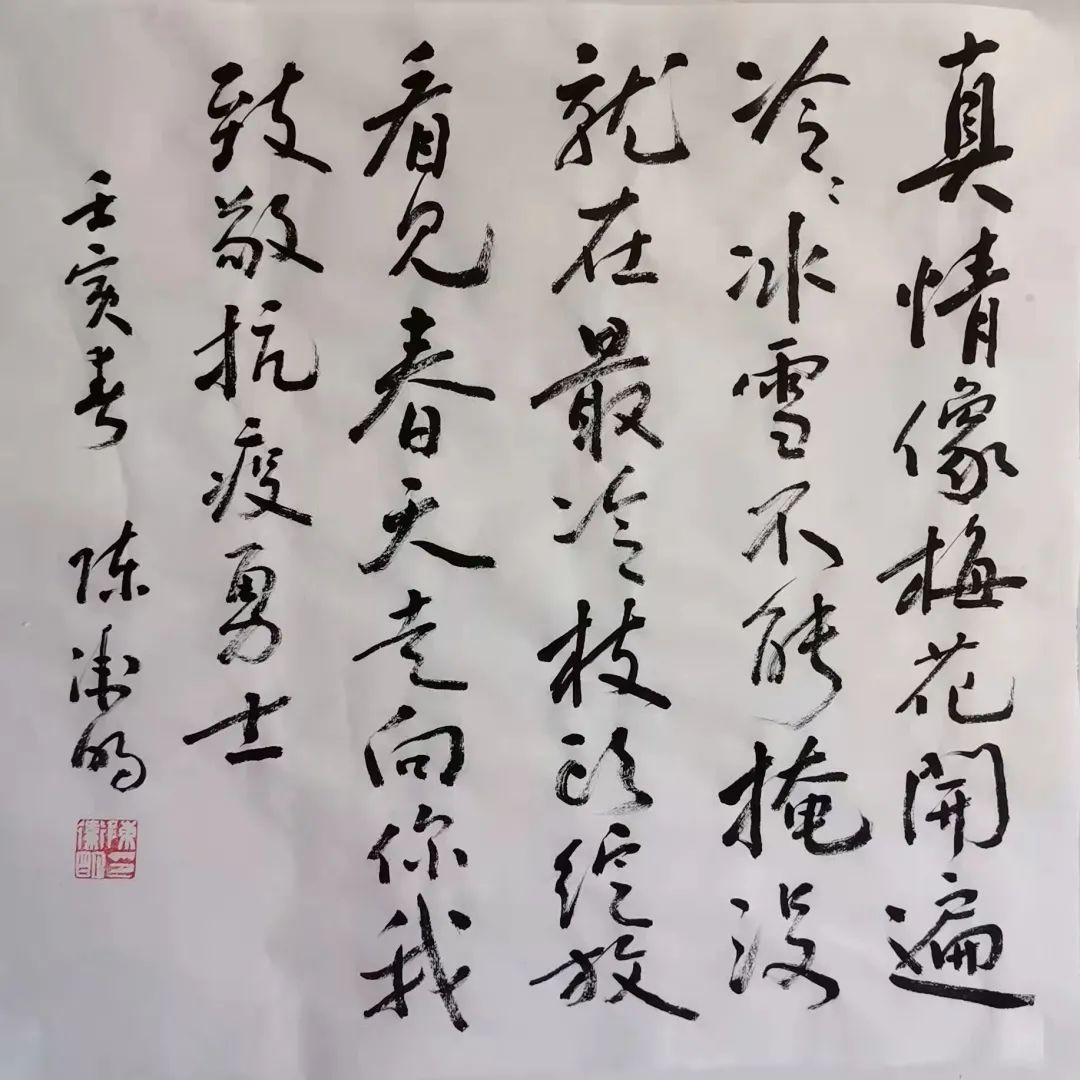 真情像梅花開遍
冷冷冰雪不能掩没
就在最冷枝头绽放
看见春天走向你我
致敬抗疫勇士
壬寅春 陈衛明